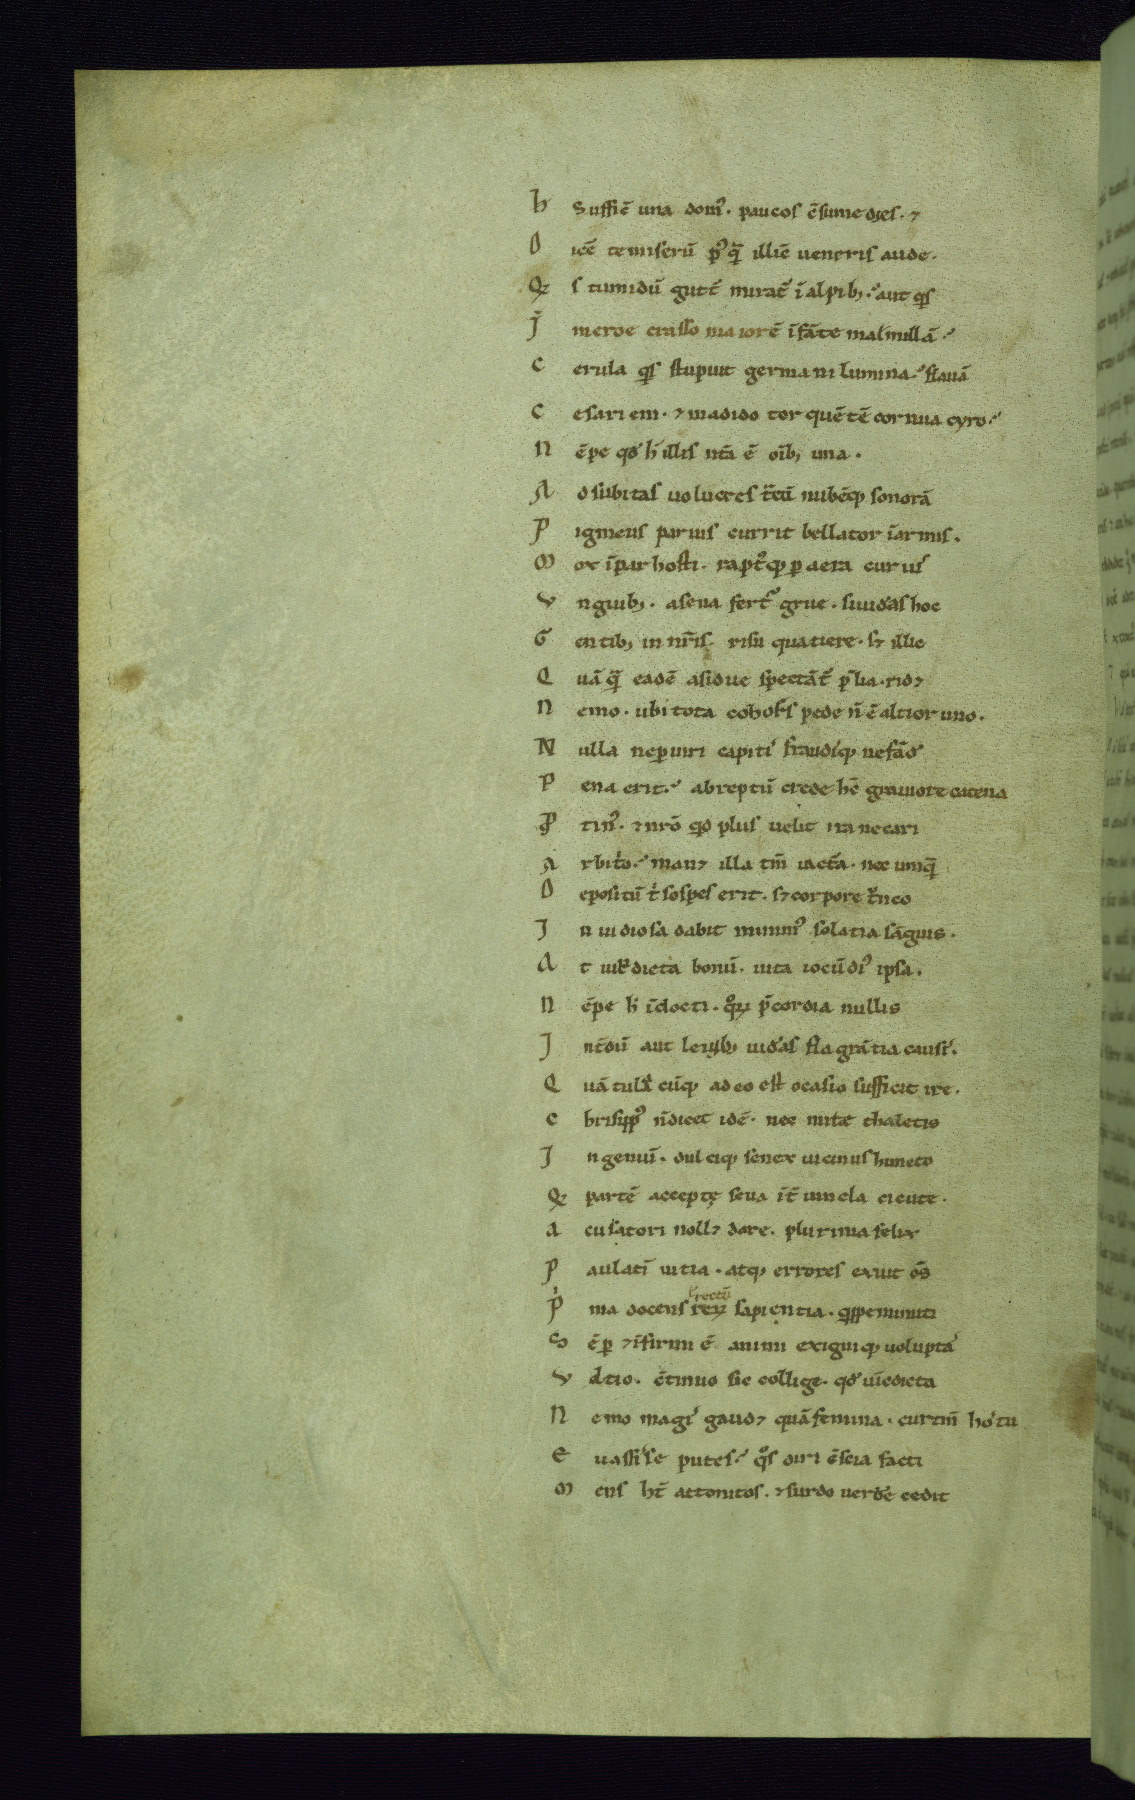 h Suffic̄ una domꝰ. paucos c̄sume dies. ⁊
D icē te miserū pꝰq̄ illīc ueneris aude.
Q̄ s tumidū gutt̄ mirat̄ ī alpibꝫ. aut q̇s
J̄ meroe crasso maiorē īfāte mamillā.
C erula q̇s stupuit germani lumina. flauā
C esariem. ⁊ madido torquētē cornua cyro.
N ēpe qđ h̄ illis nt̄a ē oībꝫ una.
A d subitas uolucres t̄cū nubēqꝫ sonorā
P igmeus paruis currit bellator īarmis.
M ox īpar hosti. raptꝰqꝫ ꝑ aera curuis
V nguibꝫ. a seua fert̄ grue. si uideas hoc
G entibꝫ in nr̄is. risu quatiere. sꝫ illic
Q uā q̄ eadē asidue spectāt̄ p̄lia. ridꝫ
N emo. ubi tota cohors pede n̄ ē altior uno.
N ulla ne ꝑiuri capitis fraudisqꝫ nefādę
P ena erit. abreptū crede hc̄ grauiore catena
P̄ tinꝰ. ⁊ nrō qͥd plus uelit ira necari
A rbit̓o. manꝫ illa tm̄ iactā. nec umq̄
D epositū t̓ sospes erit. sꝫ corpore t̄nco
J n uidiosa dabit minimꝰ solatia sāguis.
A t uīdicta bonū. uita iocūdiꝰ ipsa.
N ēpe h̄ īdocti. qͦꝝ p̄cordia nullis
J nt̄dū aut leuibꝫ uideas flagrātia causis.
Q uātulacūqꝫ adeo est ocasio sufficit ire.
C hrisippꝰ n̄ dicet idē. nec mite thaletis
J ngeniū. dulciqꝫ senex uicinus himeto
Q̄ partē acceptę seua īt̄ uincla cicute.
A cusatori nollꝫ dare. plurima felix
P aulatī uitia. atqꝫ errores exuit oēs
P̓ ma docens rectū reꝝ sapientia. q̇ppe minuti
S ēꝑ ⁊ īfirmi ē animi exiguiqꝫ uoluptas
V ltio. c̄tinuo sic collige. qđ uīdicta
N emo magis gaudꝫ quā femina. cur tm̄ hos tu
E uassise putes. qͦs diri c̄scia facti
M ens ht̄ attonitos. ⁊ surdo uerbe cedit